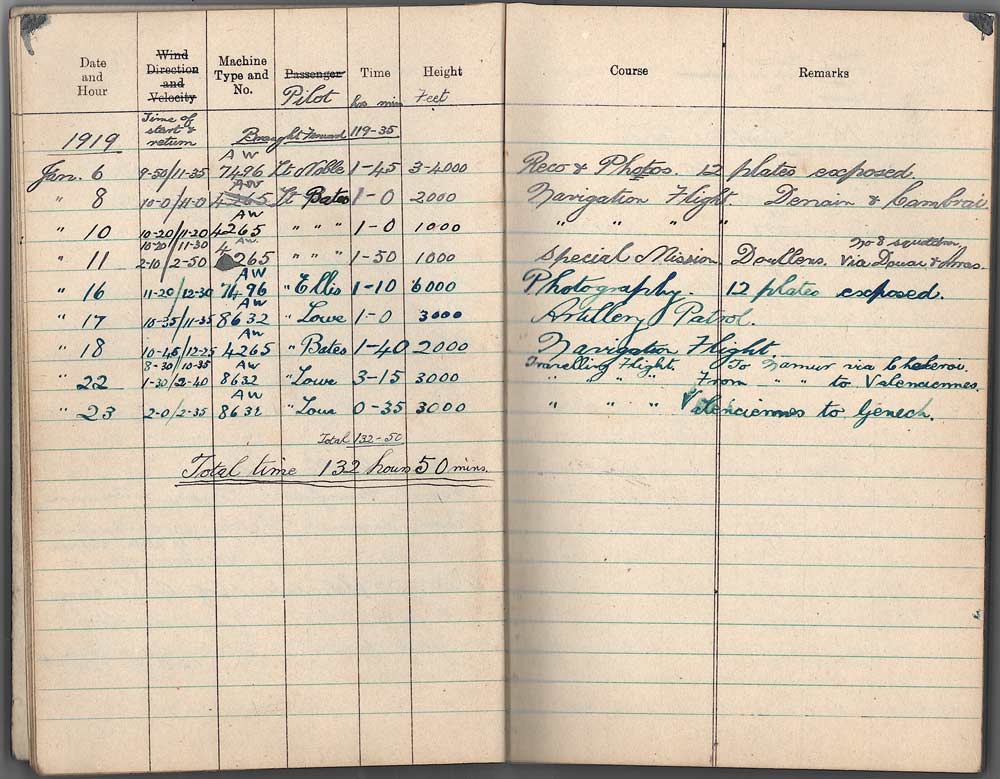 Date and Hour Wind Direction and Velocity Machine Type and No. Passenger Pilot Time hrs mins Height Feet Course Remarks
1919 Time of start & return Brought Forward 119-35
Jan. 6 9-50/11-35 AW 7496 Lt Noble 1-45 3-4000 Reco & Photos. 12 plates exposed.
" 8 10-0/11-0 AW 4265 Lt Bates 1-0 2000 Navigation Flight. Denain & Cambrai.
" 10 10-20/11-20 AW 4265 " " " 1-0 1000 " " " "
" 11 10-20/11-30 2-10/2-50 AW 4265 " " " 1-50 1000 Special Mission. Doullens. No 8 squadron via Douai & Arras.
" 16 11-20/12-30 AW 7496 " Ellis 1-10 6000 Photography. 12 plates exposed.
" 17 10-35/11-35 AW 8632 " Lowe 1-0 3000 Artillery Patrol.
" 18 10-45/12-25 AW 4265 " Bates 1-40 2000 Navigation Flight.
" 22 8-30/10-35 1-30/2-40 AW 8632 " Lowe 3-15 3000 Travelling Flight. To Namur via Cheleroi.
" " " From " " to Valenciennes.
" 23 2-0/2-35 AW 8632 " Lowe 0-35 3000 " " " Valenciennes to Genech.
Total 132-50
Total time 132 hours 50 mins.